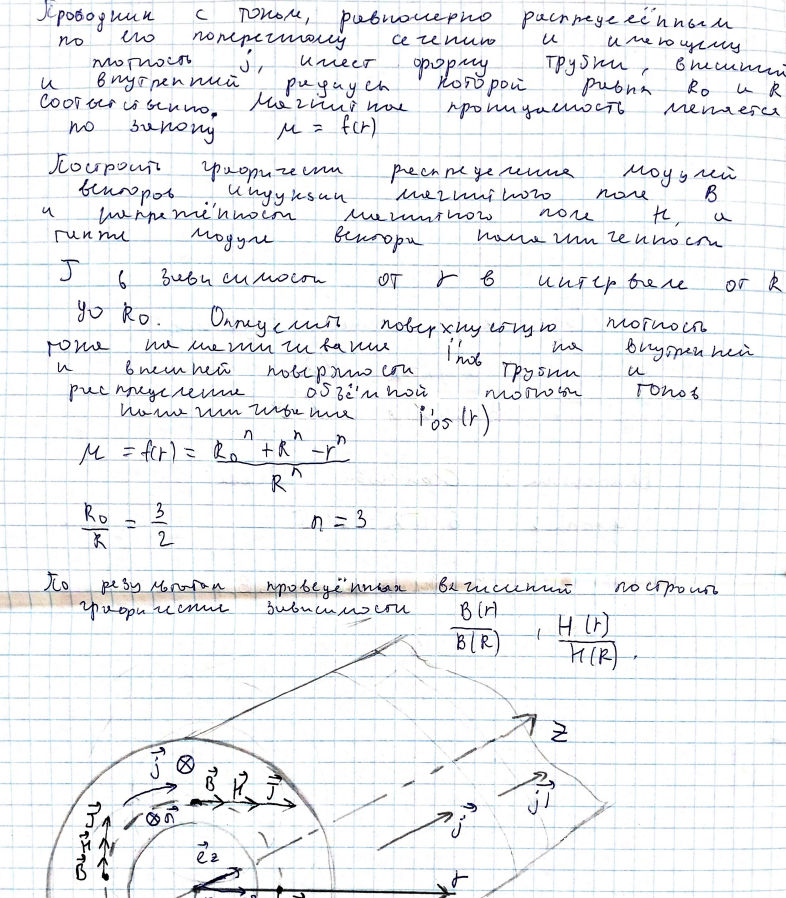 Проводник с током, равномерно распределённым
по его поперечному сечению и имеющему
плотность j, имеет форму трубки, внешний
и внутренний радиусы которой равны R₀ и R
соответственно. Магнитная проницаемость меняется
по закону μ = f(r)
Построить графически распределение модулей
векторов индукции магнитного поле B
и напряжённости магнитного поле H, а
также модуля вектора намагниченности
J в зависимости от r в интервале от R
до R₀. Определить поверхностную плотность
тока намагничивания i'пов на внутренней
и внешней поверхности трубки и
распределение объёмной плотности токов
намагничивания i'об(r)
μ = f(r) = (R₀ⁿ + Rⁿ − rⁿ) / Rⁿ
R₀/R = 3/2 n = 3
По результатам проведённых вычислений построить
графические зависимости B(r)/B(R), H(r)/H(R).
Z
j⃗ ⊗
B⃗ H⃗ J⃗
j⃗ j⃗'
e⃗z
r